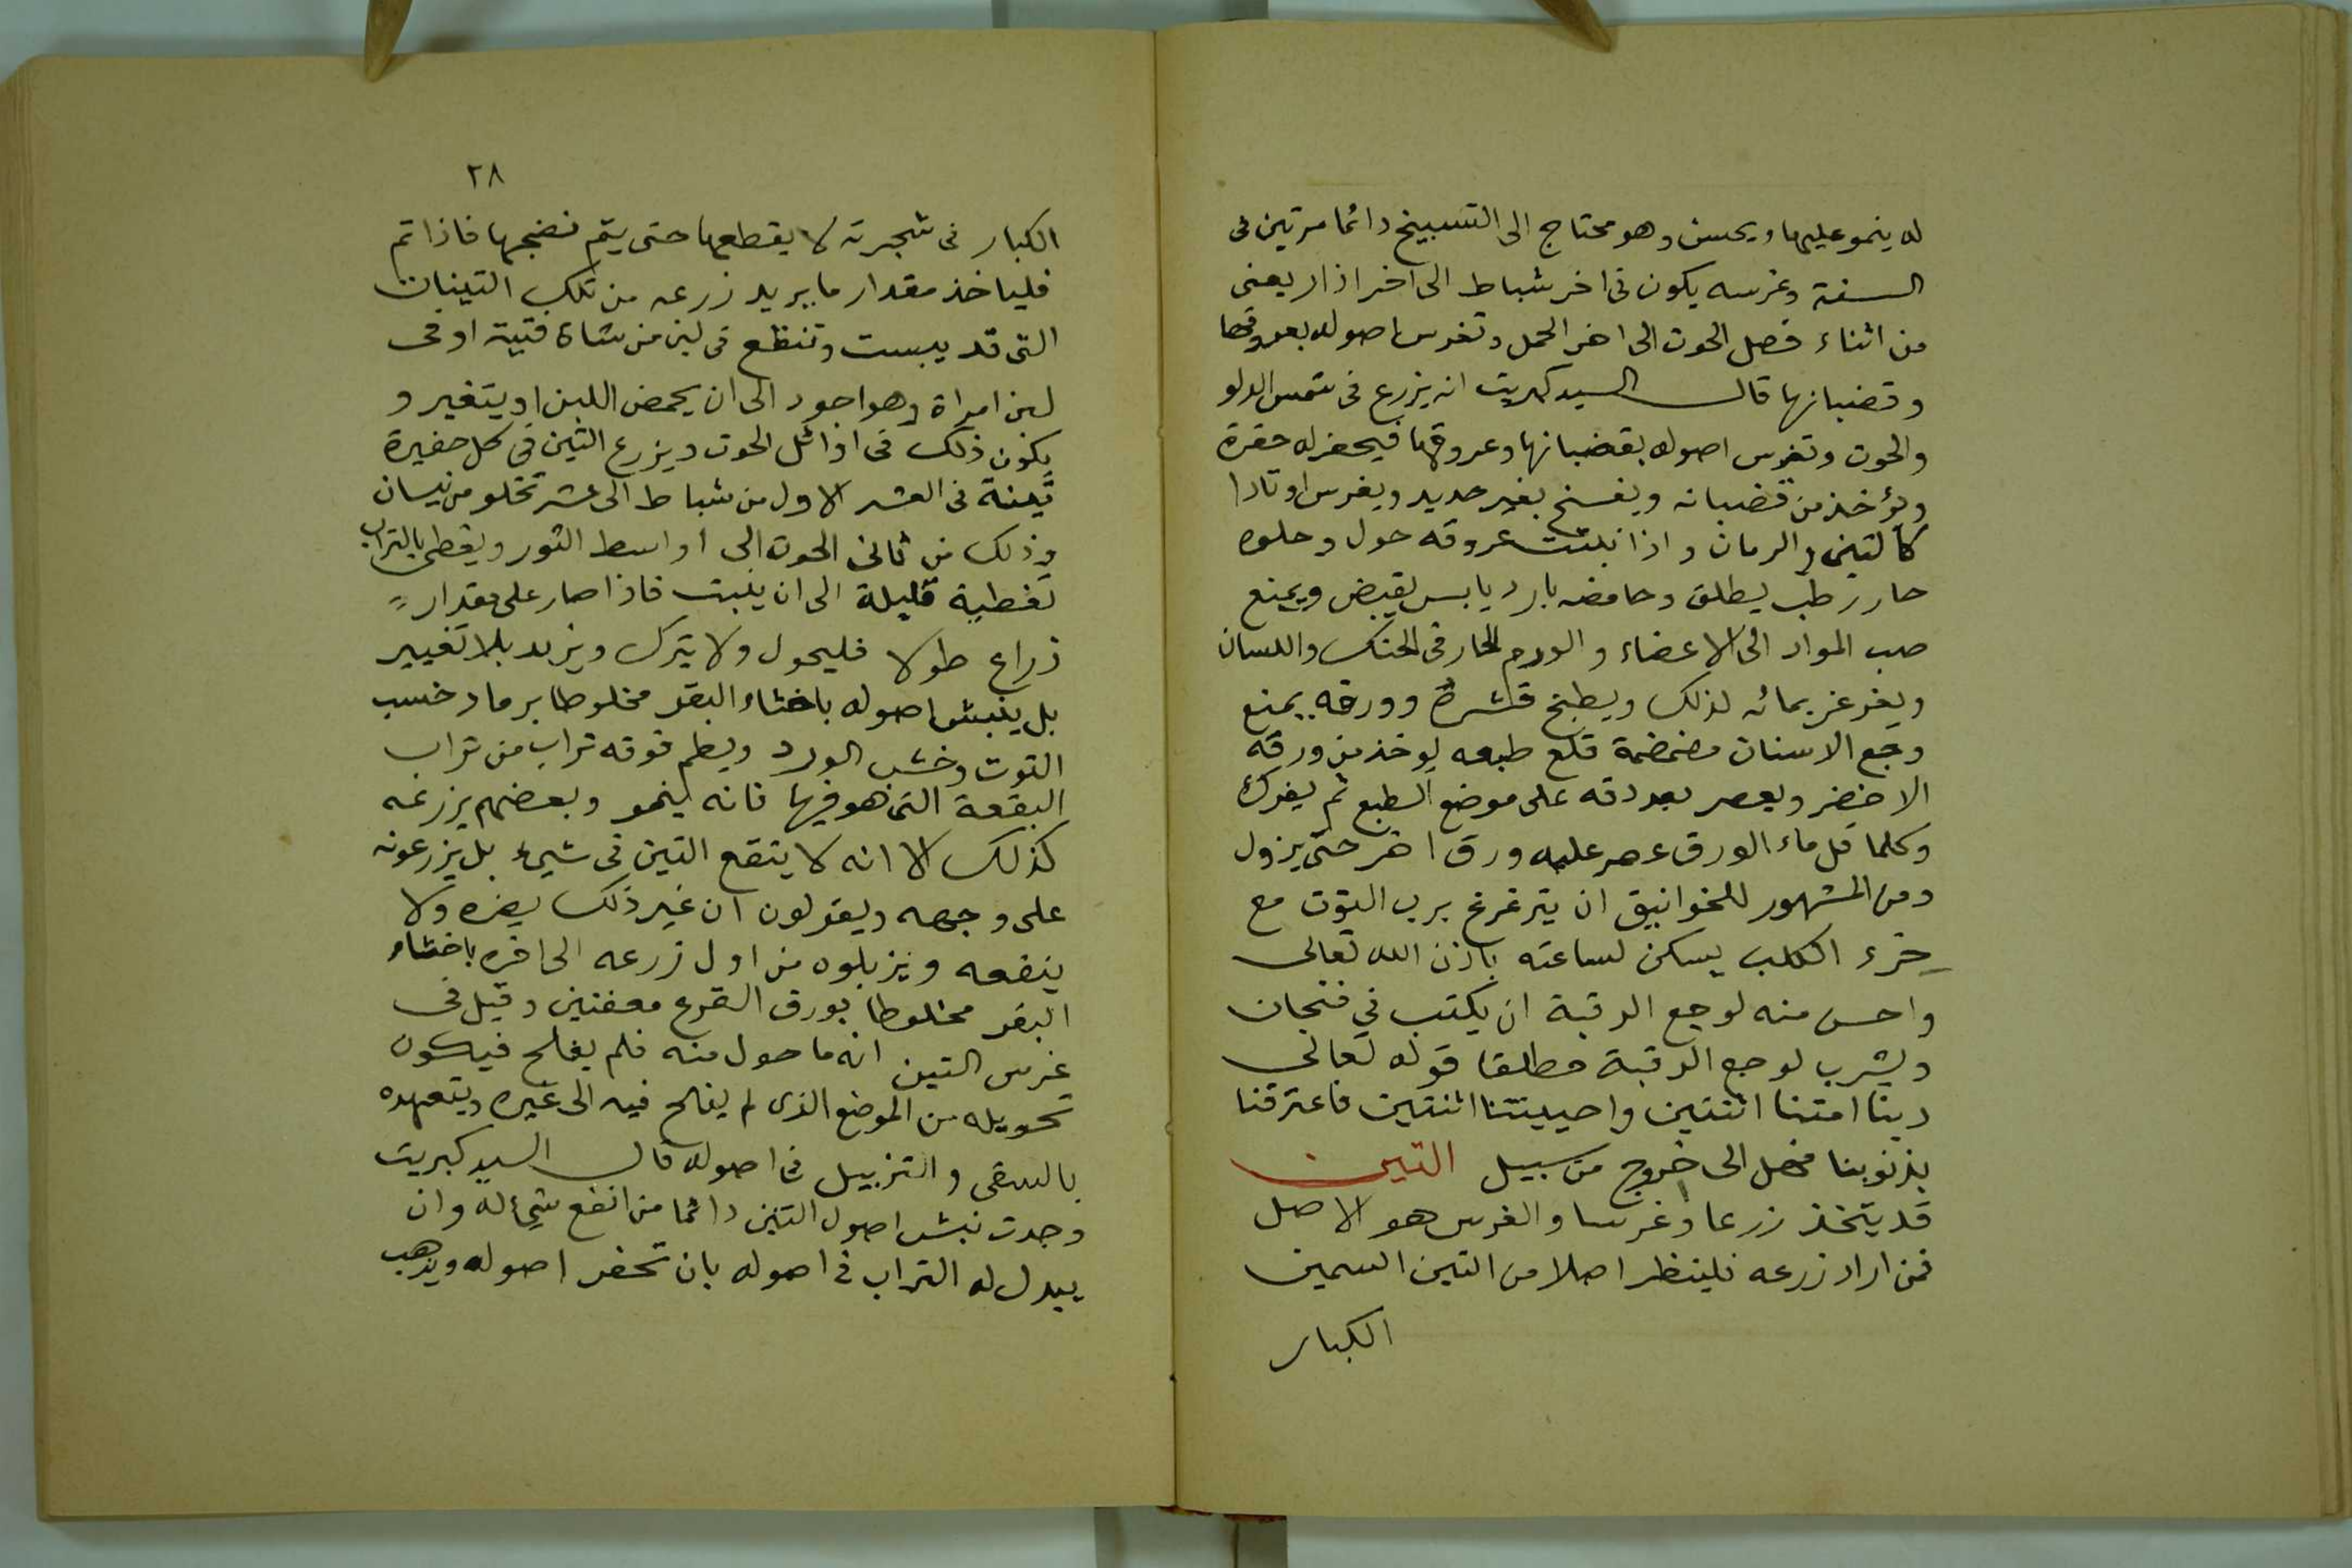 له ينمو عليها ويحسن وهو محتاج الى التسبيخ دائما مرتين فى
السنة وغرسه يكون فى اخر شباط الى اخر اذار يعنى
من اثناء فصل الحوت الى اخر الحمل وتغرس اصوله بعروقها
وقضبانها قال السيد كبريت انه يزرع فى شمس الدلو
والحوت وتغرس اصوله بقضبانها وعروقها فيحفر له حفرة
ويؤخذ من قضبانه ويفسخ بغير حديد ويغرس اوتادا
كالتين والرمان واذا نبتت عروقه حول وحلوه
حار رطب يطلق وحامضه بارد يابس يقبض ويمنع
صب المواد الى الاعضاء والورم الحار فى الحنك واللسان
ويغرغر بمائه لذلك ويطبخ قشره وورقه يمنع
وجع الاسنان مضمضة قلع طبعه يوخذ من ورقه
الاخضر ويعصر بعد دقه على موضع الطبع ثم يفرك
وكلما قل ماء الورق عصر عليه ورق اخر حتى يزول
ومن المشهور للخوانيق ان يترغرغ برب التوت مع
خرء الكلب يسكن لساعته باذن الله تعالى
واحسن منه لوجع الرقبة ان يكتب في فنجان
ويشرب لوجع الرقبة مطلقا قوله تعالى
ربنا امتنا اثنتين واحييتنا اثنتين فاعترفنا
بذنوبنا فهل الى خروج من سبيل التين
قد يتخذ زرعا وغرسا والغرس هو الاصل
فمن اراد زرعه فلينظر اصلا من التين السمين
الكبار
٢٨
الكبار فى شجرته لا يقطعها حتى يتم نضجها فاذا تم
فلياخذ مقدار ما يريد زرعه من تلك التينات
التى قد يبست وتنقع فى لبن من شاة فتية او فى
لبن امراة وهو اجود الى ان يحمض اللبن او يتغير و
يكون ذلك فى اوائل الحوت ويزرع التين في كل حفيرة
تينة فى العشر الاول من شباط الى عشر تخلو من نيسان
وذلك من ثانى الحوت الى اواسط الثور ويغطى بالتراب
تغطية قليلة الى ان ينبت فاذا صار على مقدار
ذراع طولا فليحول ولا يترك ويزبد بلا تغيير
بل ينبش اصوله باخثاء البقر مخلوطا برماد خسب
التوت وخشب الورد ويطم فوقه تراب من تراب
البقعة التى هو فيها فانه ينمو وبعضهم يزرعه
كذلك الا انه لا ينقع التين فى شيء بل يزرعونه
على وجهه ويقولون ان غير ذلك يضره ولا
ينفعه ويزبلوه من اول زرعه الى اخره باخثاء
البقر مخلوطا بورق القرع معفنين وقيل فى
غرس التين انه ما حول منه فلم يفلح فيكون
تحويله من الموضع الذى لم يفلح فيه الى غيره ويتعهده
بالسقى والتزبيل فى اصوله قال السيد كبريت
وجدت نبش اصول التين دائما من انفع شئ له وان
يبدل له التراب فى اصوله بان تحفر اصوله ويذهب